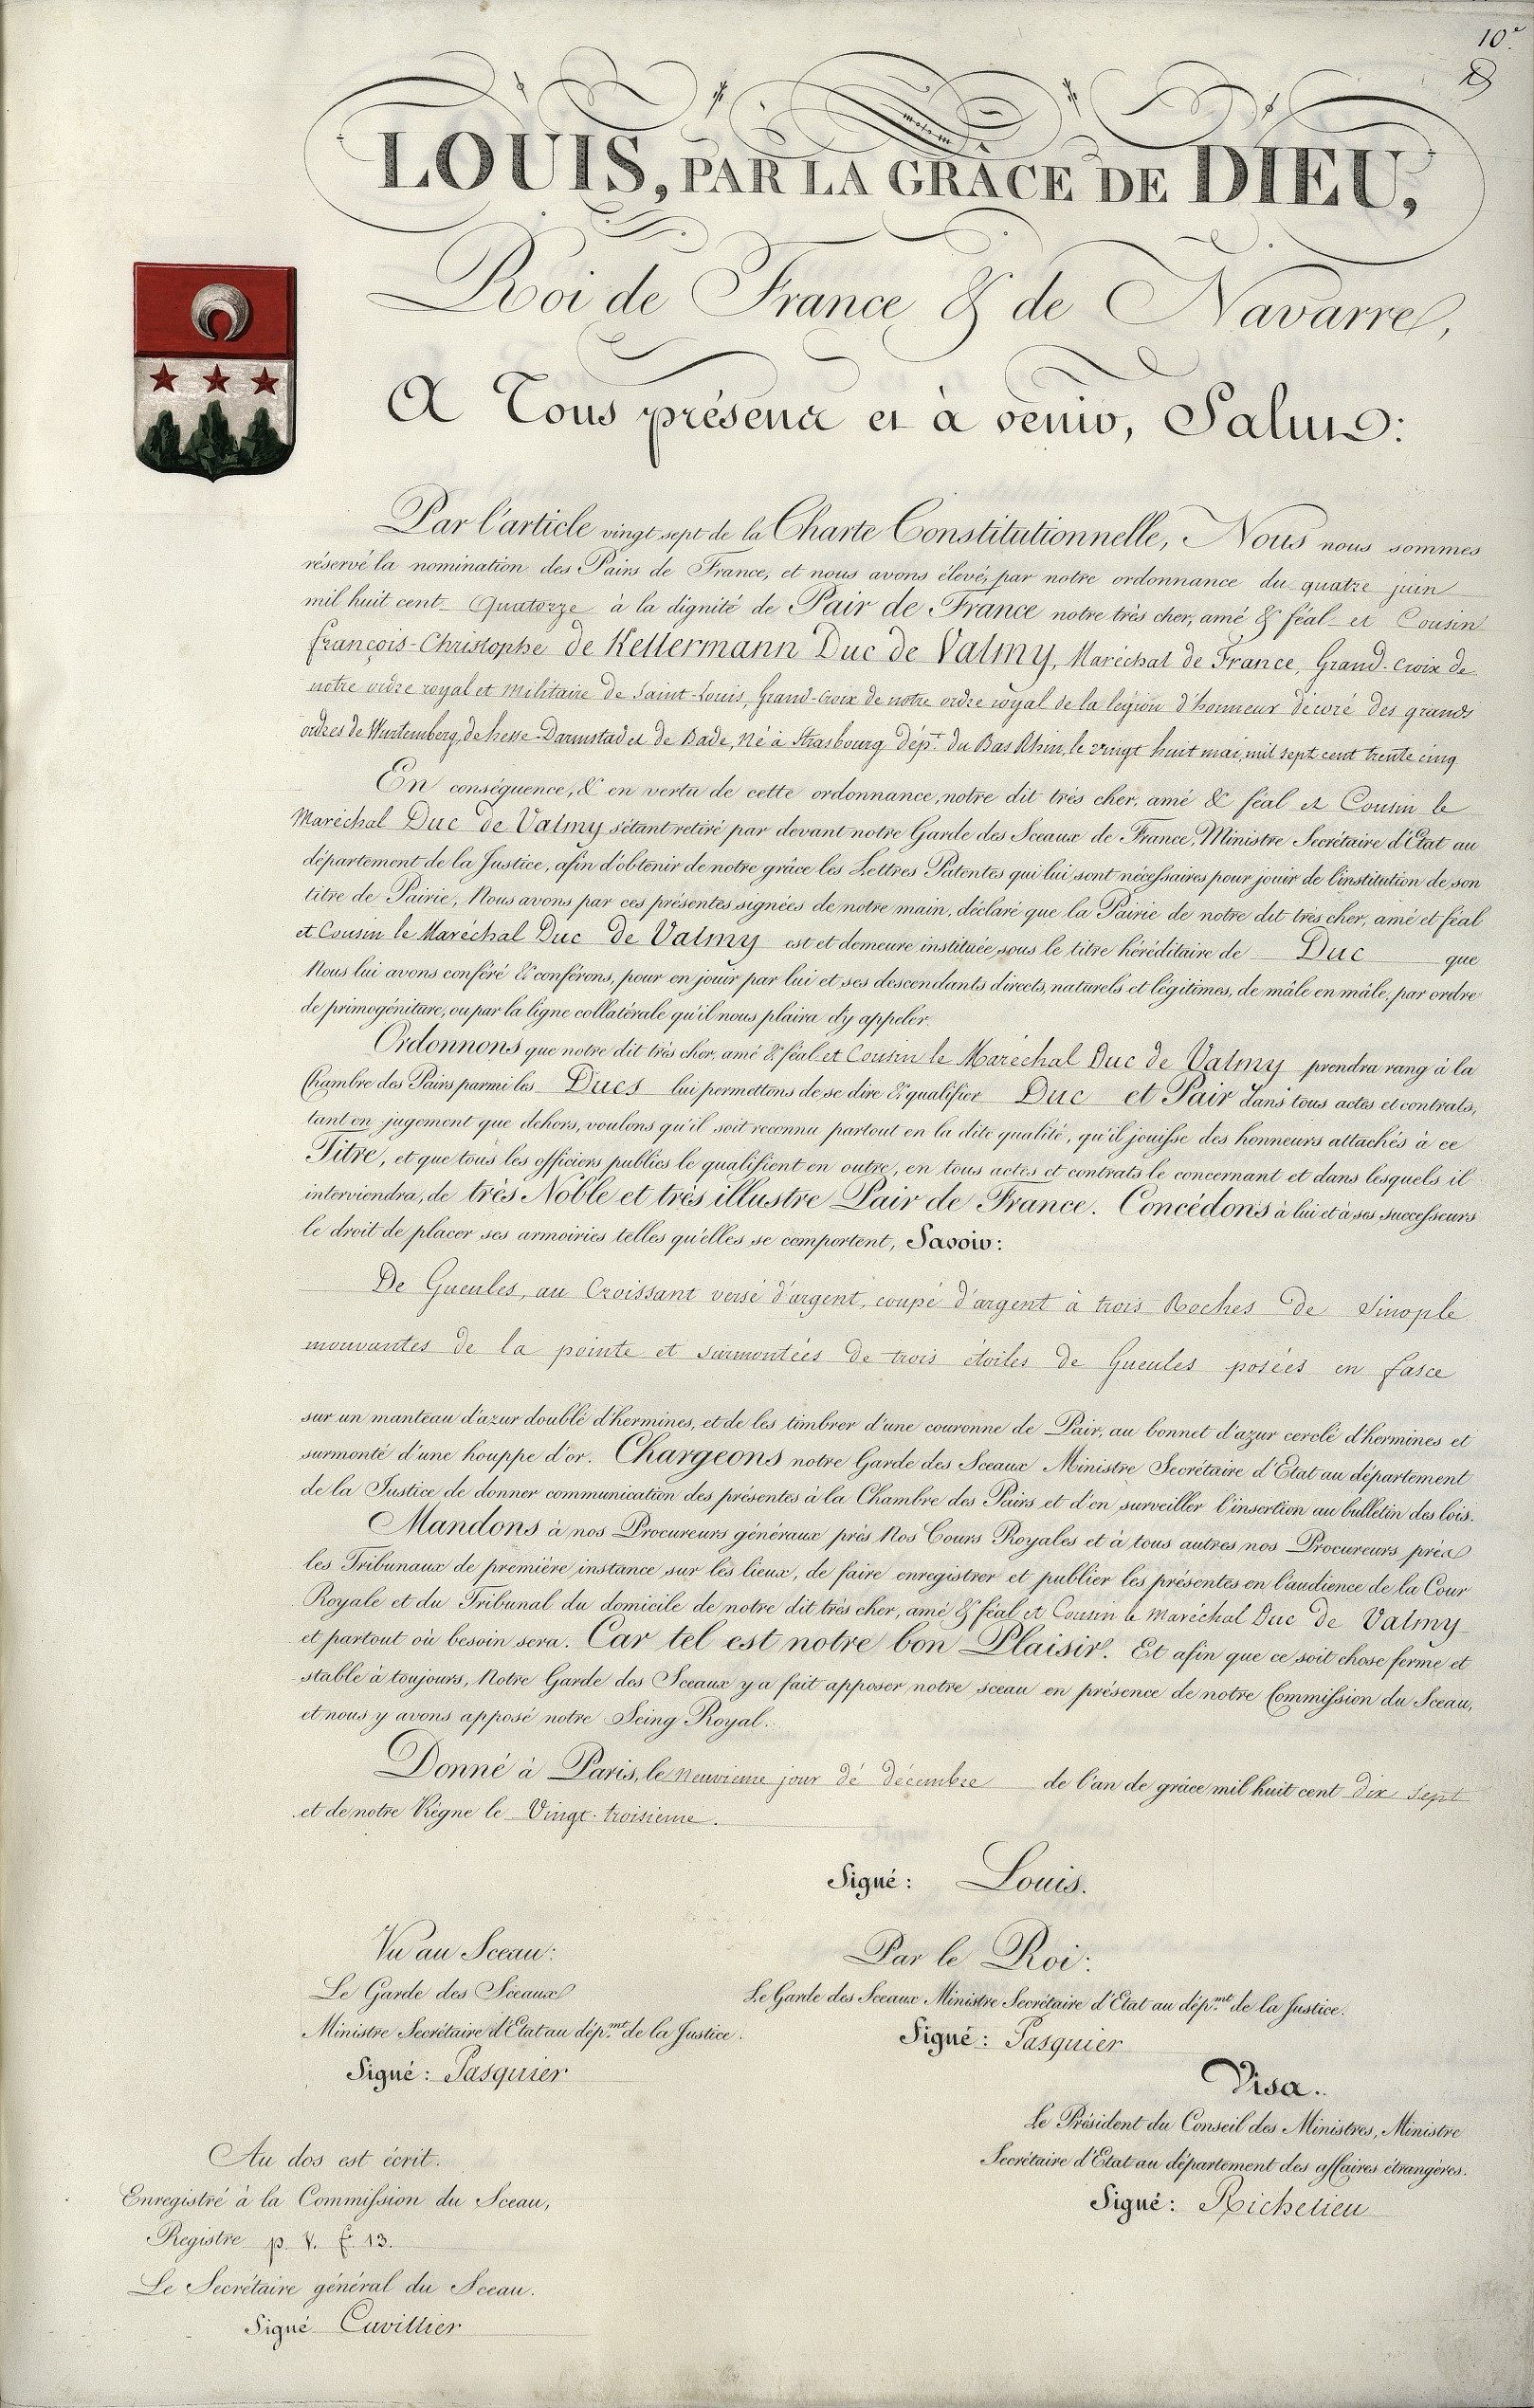 10e
LOUIS, PAR LA GRÂCE DE DIEU,
Roi de France & de Navarre,
A Tous présens et à venir, Salut:
Par l'article vingt sept de la Charte Constitutionnelle, Nous nous sommes
réservé la nomination des Pairs de France, et nous avons élevé, par notre ordonnance du quatre juin
mil huit cent Quatorze à la dignité de Pair de France notre très cher, amé & féal et Cousin
françois-Christophe de Kellermann Duc de Valmy, Maréchal de France, Grand-Croix de
notre ordre royal et militaire de Saint-Louis, Grand-Croix de notre ordre royal de la légion d'honneur décoré des grands
ordres de Wurtemberg, de hesse-Darmstad et de Bade, Né à Strasbourg dépt. du Bas Rhin, le vingt huit mai, mil sept cent trente cinq
En conséquence, & en vertu de cette ordonnance, notre dit très cher, amé & féal et Cousin le
Maréchal Duc de Valmy s'étant retiré par devant notre Garde des Sceaux de France, Ministre Secrétaire d'Etat au
département de la Justice, afin d'obtenir de notre grâce les Lettres Patentes qui lui sont nécessaires pour jouir de l'institution de son
titre de Pairie, Nous avons par ces présentes signées de notre main, déclaré que la Pairie de notre dit très cher, amé et féal
et Cousin le Maréchal Duc de Valmy est et demeure instituée sous le titre héréditaire de Duc que
Nous lui avons conféré & conférons, pour en jouir par lui et ses descendants directs, naturels et légitimes, de mâle en mâle, par ordre
de primogéniture, ou par la ligne collatérale qu'il nous plaira d'y appeler.
Ordonnons que notre dit très cher, amé & féal et Cousin le Maréchal Duc de Valmy prendra rang à la
Chambre des Pairs parmi les Ducs lui permettons de se dire & qualifier Duc et Pair dans tous actes et contrats,
tant en jugement que dehors, voulons qu'il soit reconnu partout en la dite qualité, qu'il jouisse des honneurs attachés à ce
Titre, et que tous les officiers publics le qualifient en outre, en tous actes et contrats le concernant et dans lesquels il
interviendra, de très Noble et très illustre Pair de France. Concédons à lui et à ses successeurs
le droit de placer ses armoiries telles qu'elles se comportent, Savoir:
De Gueules, au Croissant versé d'argent, coupé d'argent à trois Roches de Sinople
mouvantes de la pointe et surmontées de trois étoiles de Gueules posées en fasce
sur un manteau d'azur doublé d'hermines, et de les timbrer d'une couronne de Pair, au bonnet d'azur cerclé d'hermines et
surmonté d'une houppe d'or. Chargeons notre Garde des Sceaux Ministre Secrétaire d'Etat au département
de la Justice de donner communication des présentes à la Chambre des Pairs et d'en surveiller l'insertion au bulletin des lois.
Mandons à nos Procureurs généraux près Nos Cours Royales et à tous autres nos Procureurs près
les Tribunaux de première instance sur les lieux, de faire enregistrer et publier les présentes en l'audience de la Cour
Royale et du Tribunal du domicile de notre dit très cher, amé & féal et Cousin le maréchal Duc de Valmy
et partout où besoin sera. Car tel est notre bon Plaisir. Et afin que ce soit chose ferme et
stable à toujours, Notre Garde des Sceaux y a fait apposer notre sceau en présence de notre Commission du Sceau,
et nous y avons apposé notre Seing Royal.
Donné à Paris, le neuvieme jour dé décembre de l'an de grâce mil huit cent dix sept
et de notre Règne le Vingt-troisieme.
Signé: Louis.
Vu au Sceau:
Le Garde des Sceaux
Ministre Secrétaire d'Etat au dép.mt de la Justice.
Signé: Pasquier
Par le Roi:
Le Garde des Sceaux Ministre Secrétaire d'Etat au dép.mt de la Justice.
Signé: Pasquier
Visa.
Le Président du Conseil des Ministres, Ministre
Secrétaire d'Etat au département des affaires étrangères.
Signé: Richelieu
Au dos est écrit.
Enregistré à la Commission du Sceau,
Registre p. V. fo 13.
Le Secrétaire général du Sceau.
Signé Cuvillier